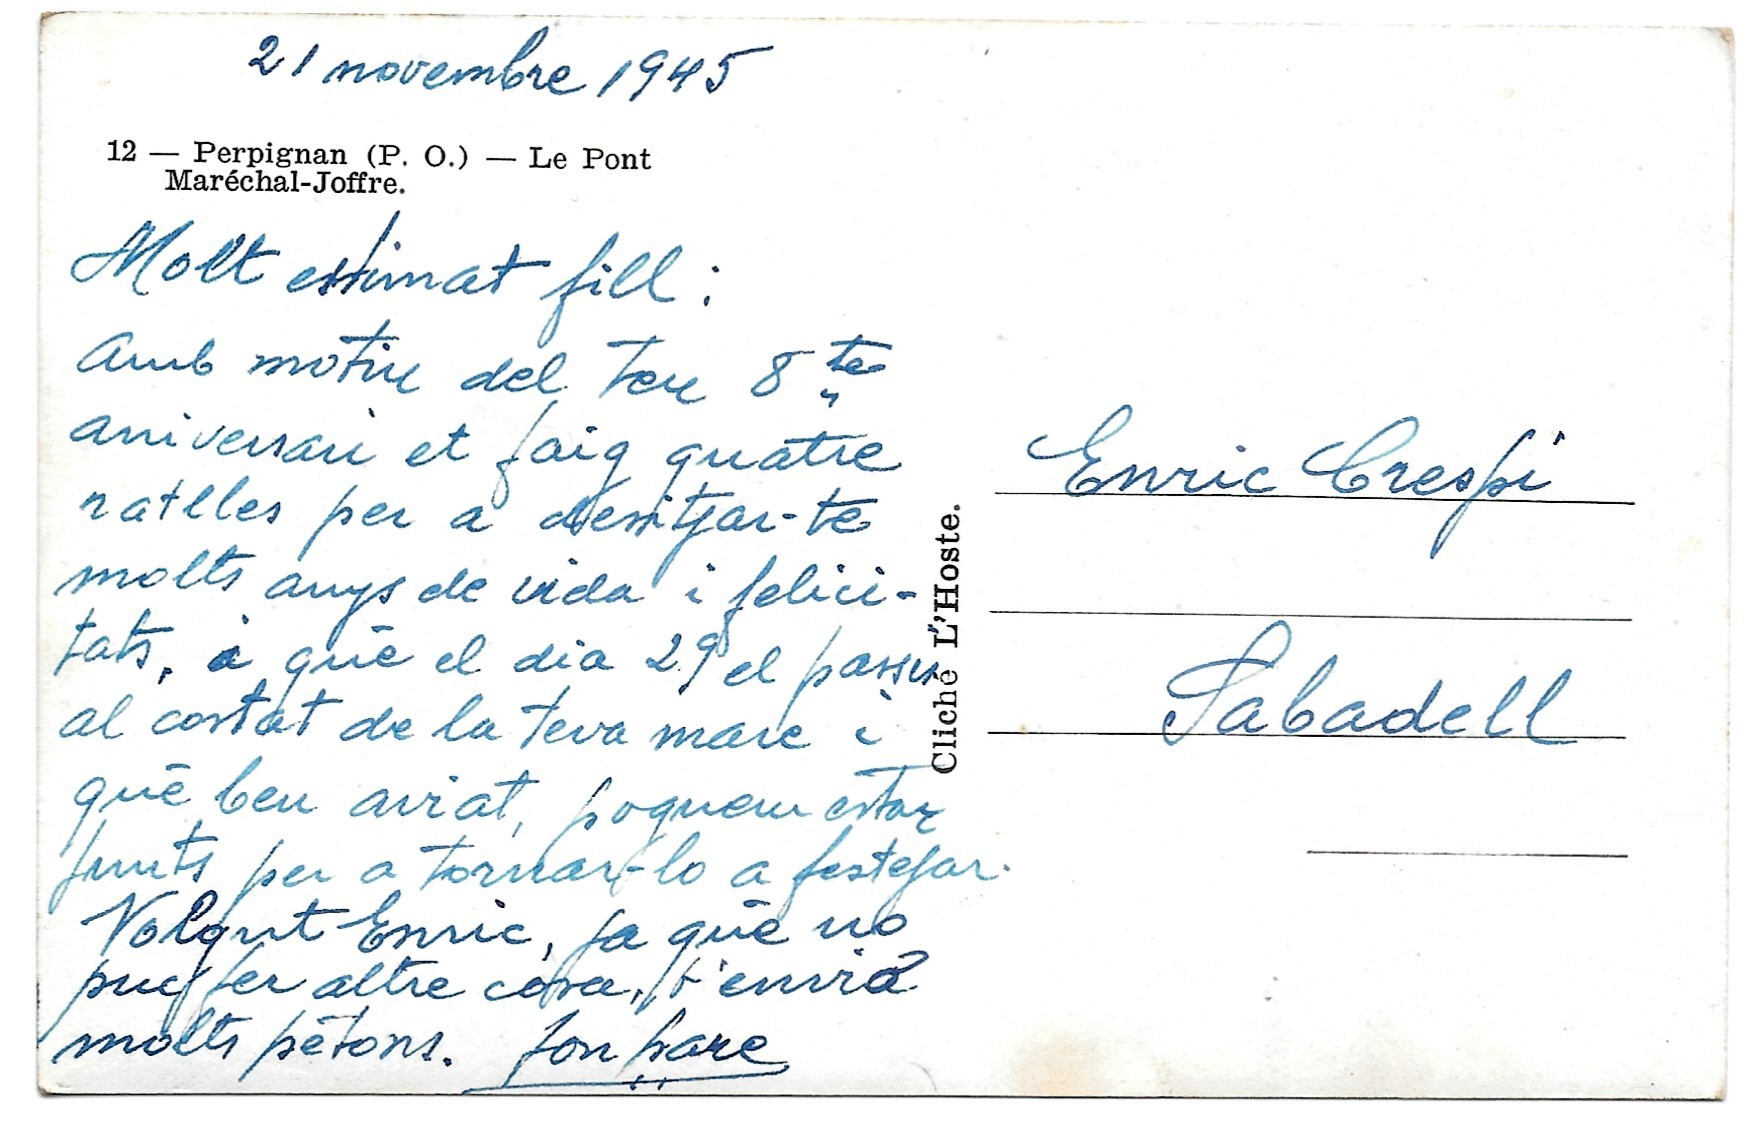 21 novembre 1945
12 — Perpignan (P. O.) — Le Pont
Maréchal-Joffre.
Molt estimat fill:
Amb motiu del teu 8te
aniversari et faig quatre
ratlles per a desitjar-te
molts anys de vida i felici-
tats, i què el dia 29 el passis
al costat de la teva mare i
què ben aviat, poguem estar
junts per a tornar-lo a festejar.
Volgut Enric, ja què no
puc fer altre cosa, t'envio
molts pètons. Ton pare
Cliché L'Hoste.
Enric Crespi
Sabadell